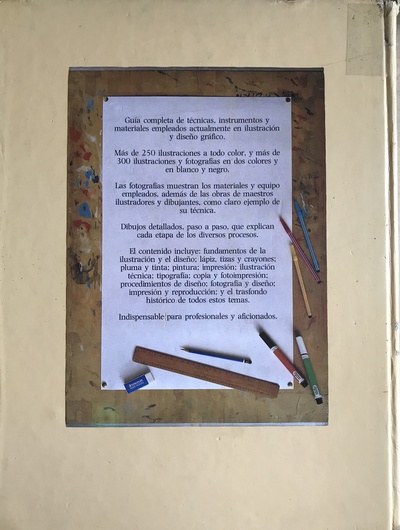 Guía completa de técnicas, instrumentos y
materiales empleados actualmente en ilustración
y diseño gráfico.
Más de 250 ilustraciones a todo color, y más de
300 ilustraciones y fotografías en dos colores y
en blanco y negro.
Las fotografías muestran los materiales y equipo
empleados, además de las obras de maestros
ilustradores y dibujantes, como claro ejemplo de
su técnica.
Dibujos detallados, paso a paso, que explican
cada etapa de los diversos procesos.
El contenido incluye: fundamentos de la
ilustración y el diseño; lápiz, tizas y crayones;
pluma y tinta; pintura; impresión; ilustración
técnica; tipografía; copia y fotoimpresión;
procedimientos de diseño; fotografía y diseño;
impresión y reproducción; y el trasfondo
histórico de todos estos temas.
Indispensable para profesionales y aficionados.